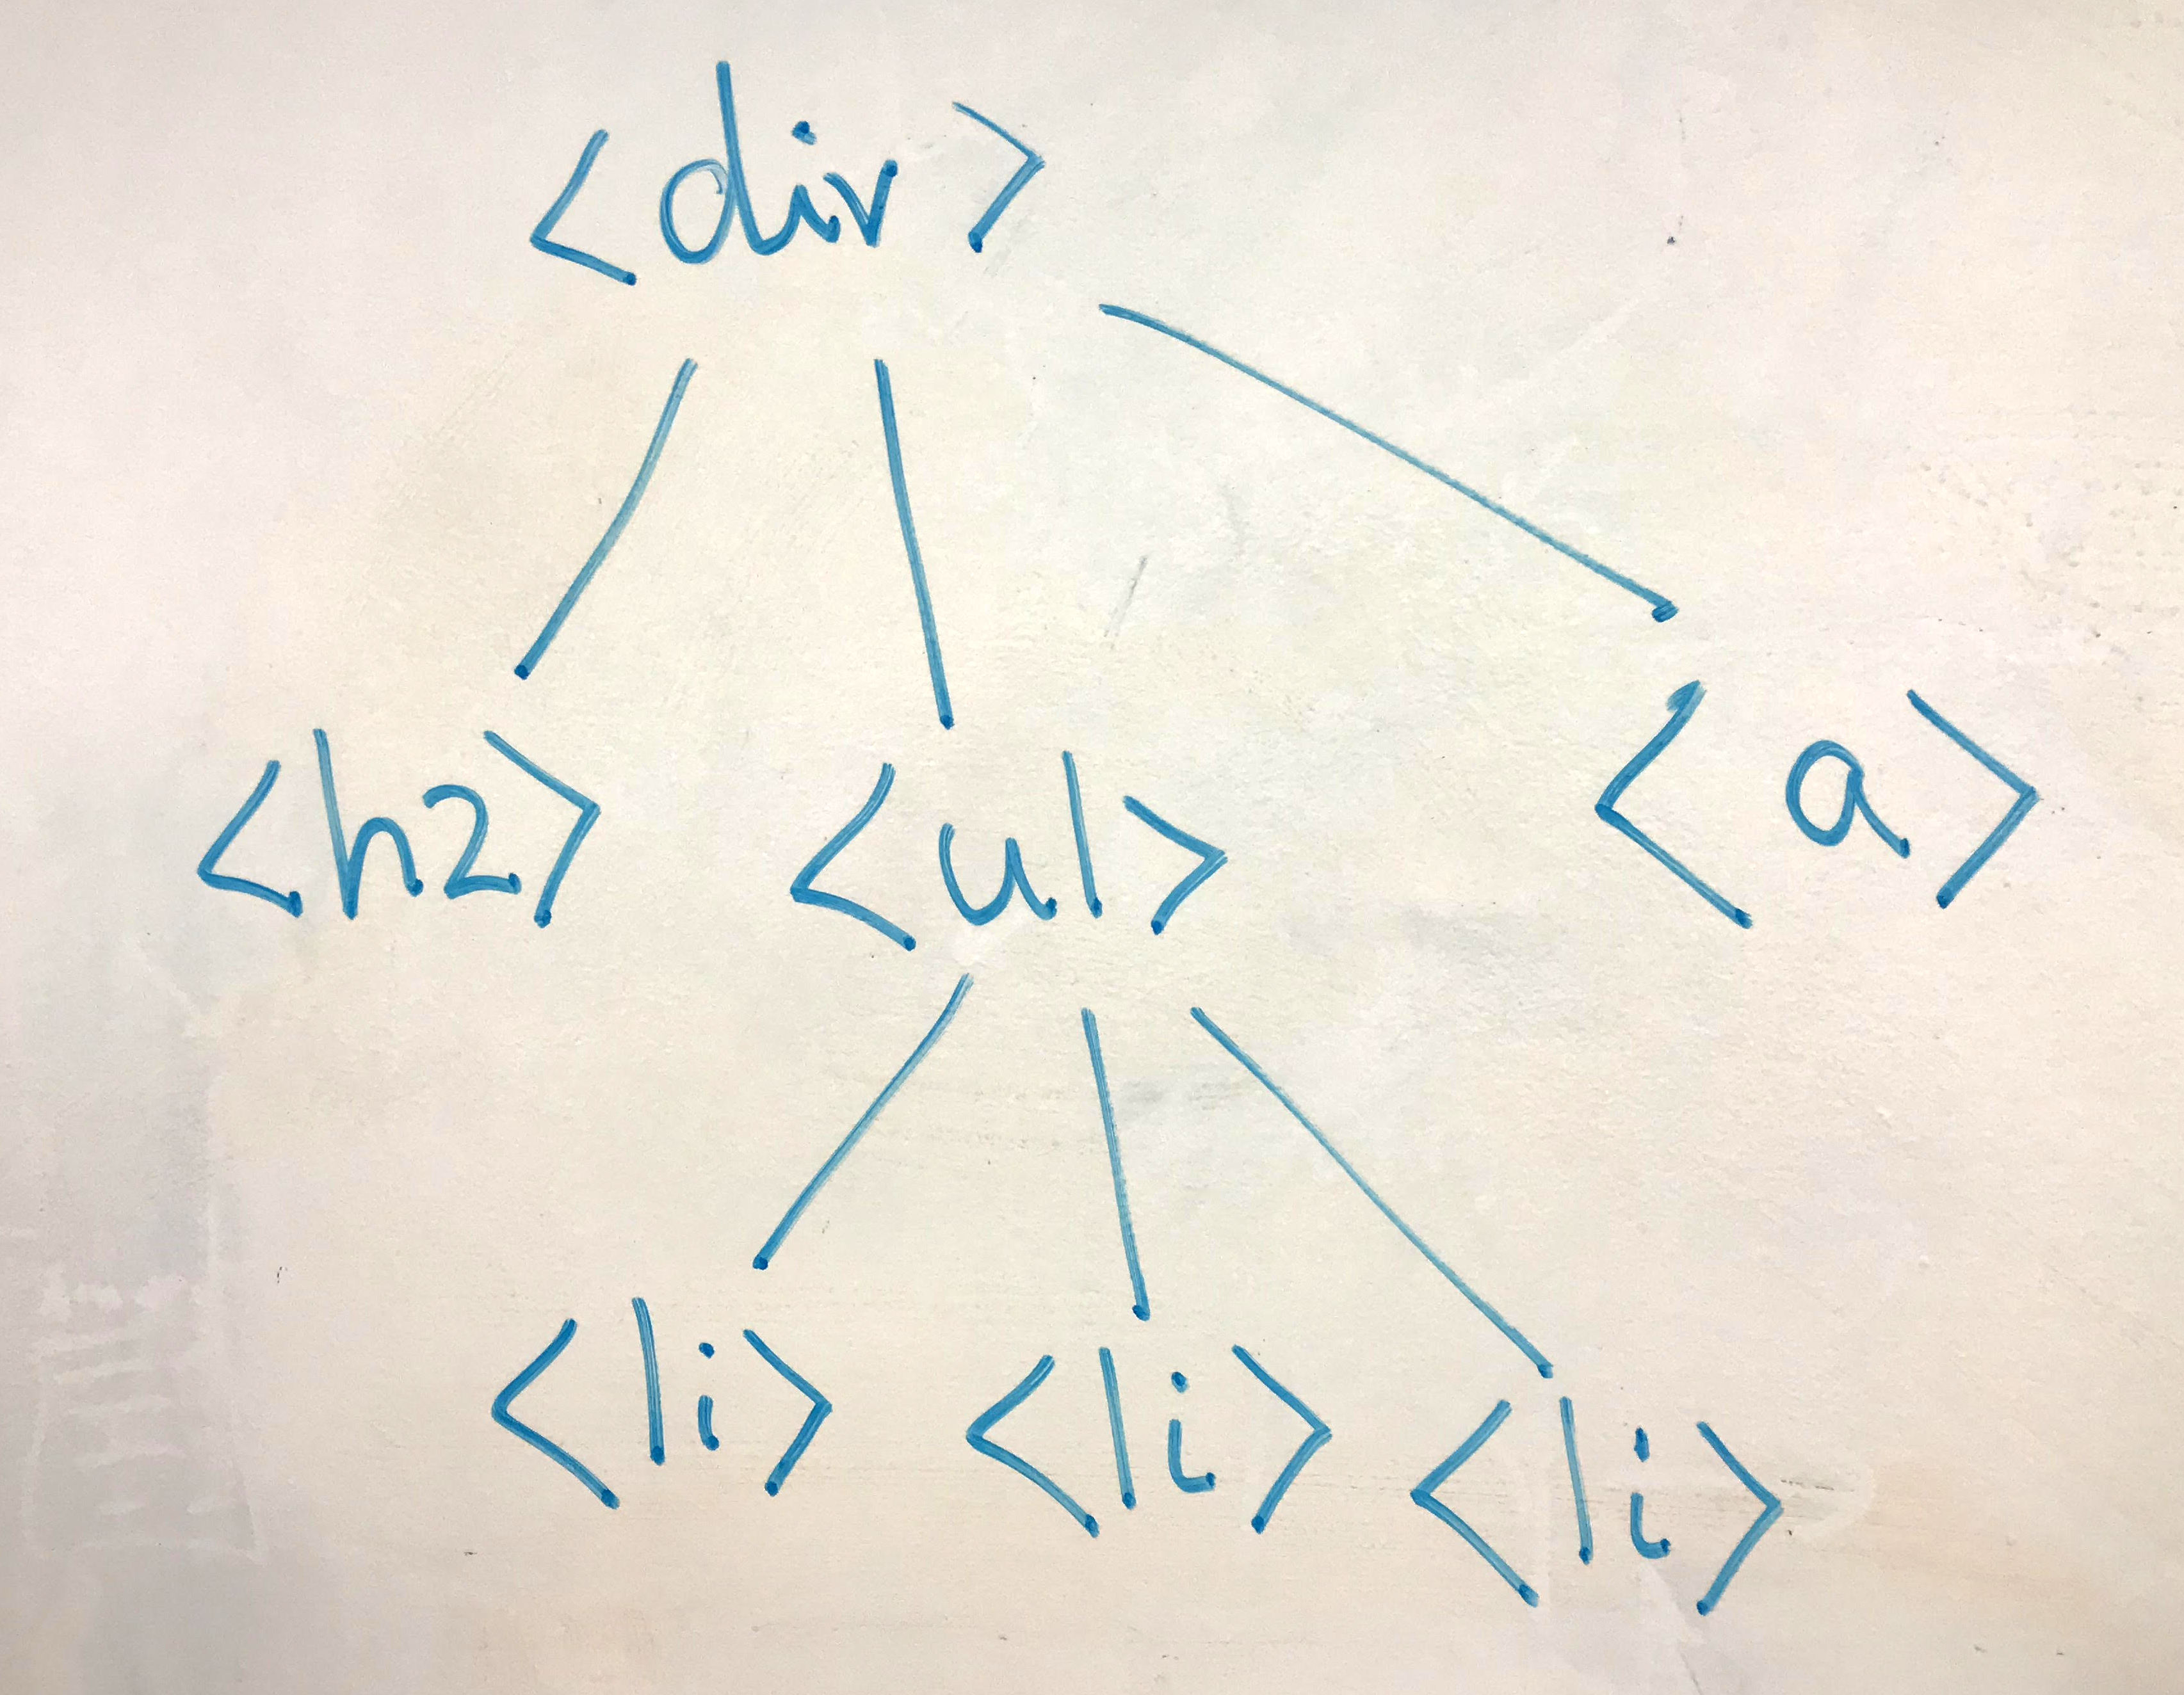 <div>
<h2> <ul> <a>
<li> <li> <li>